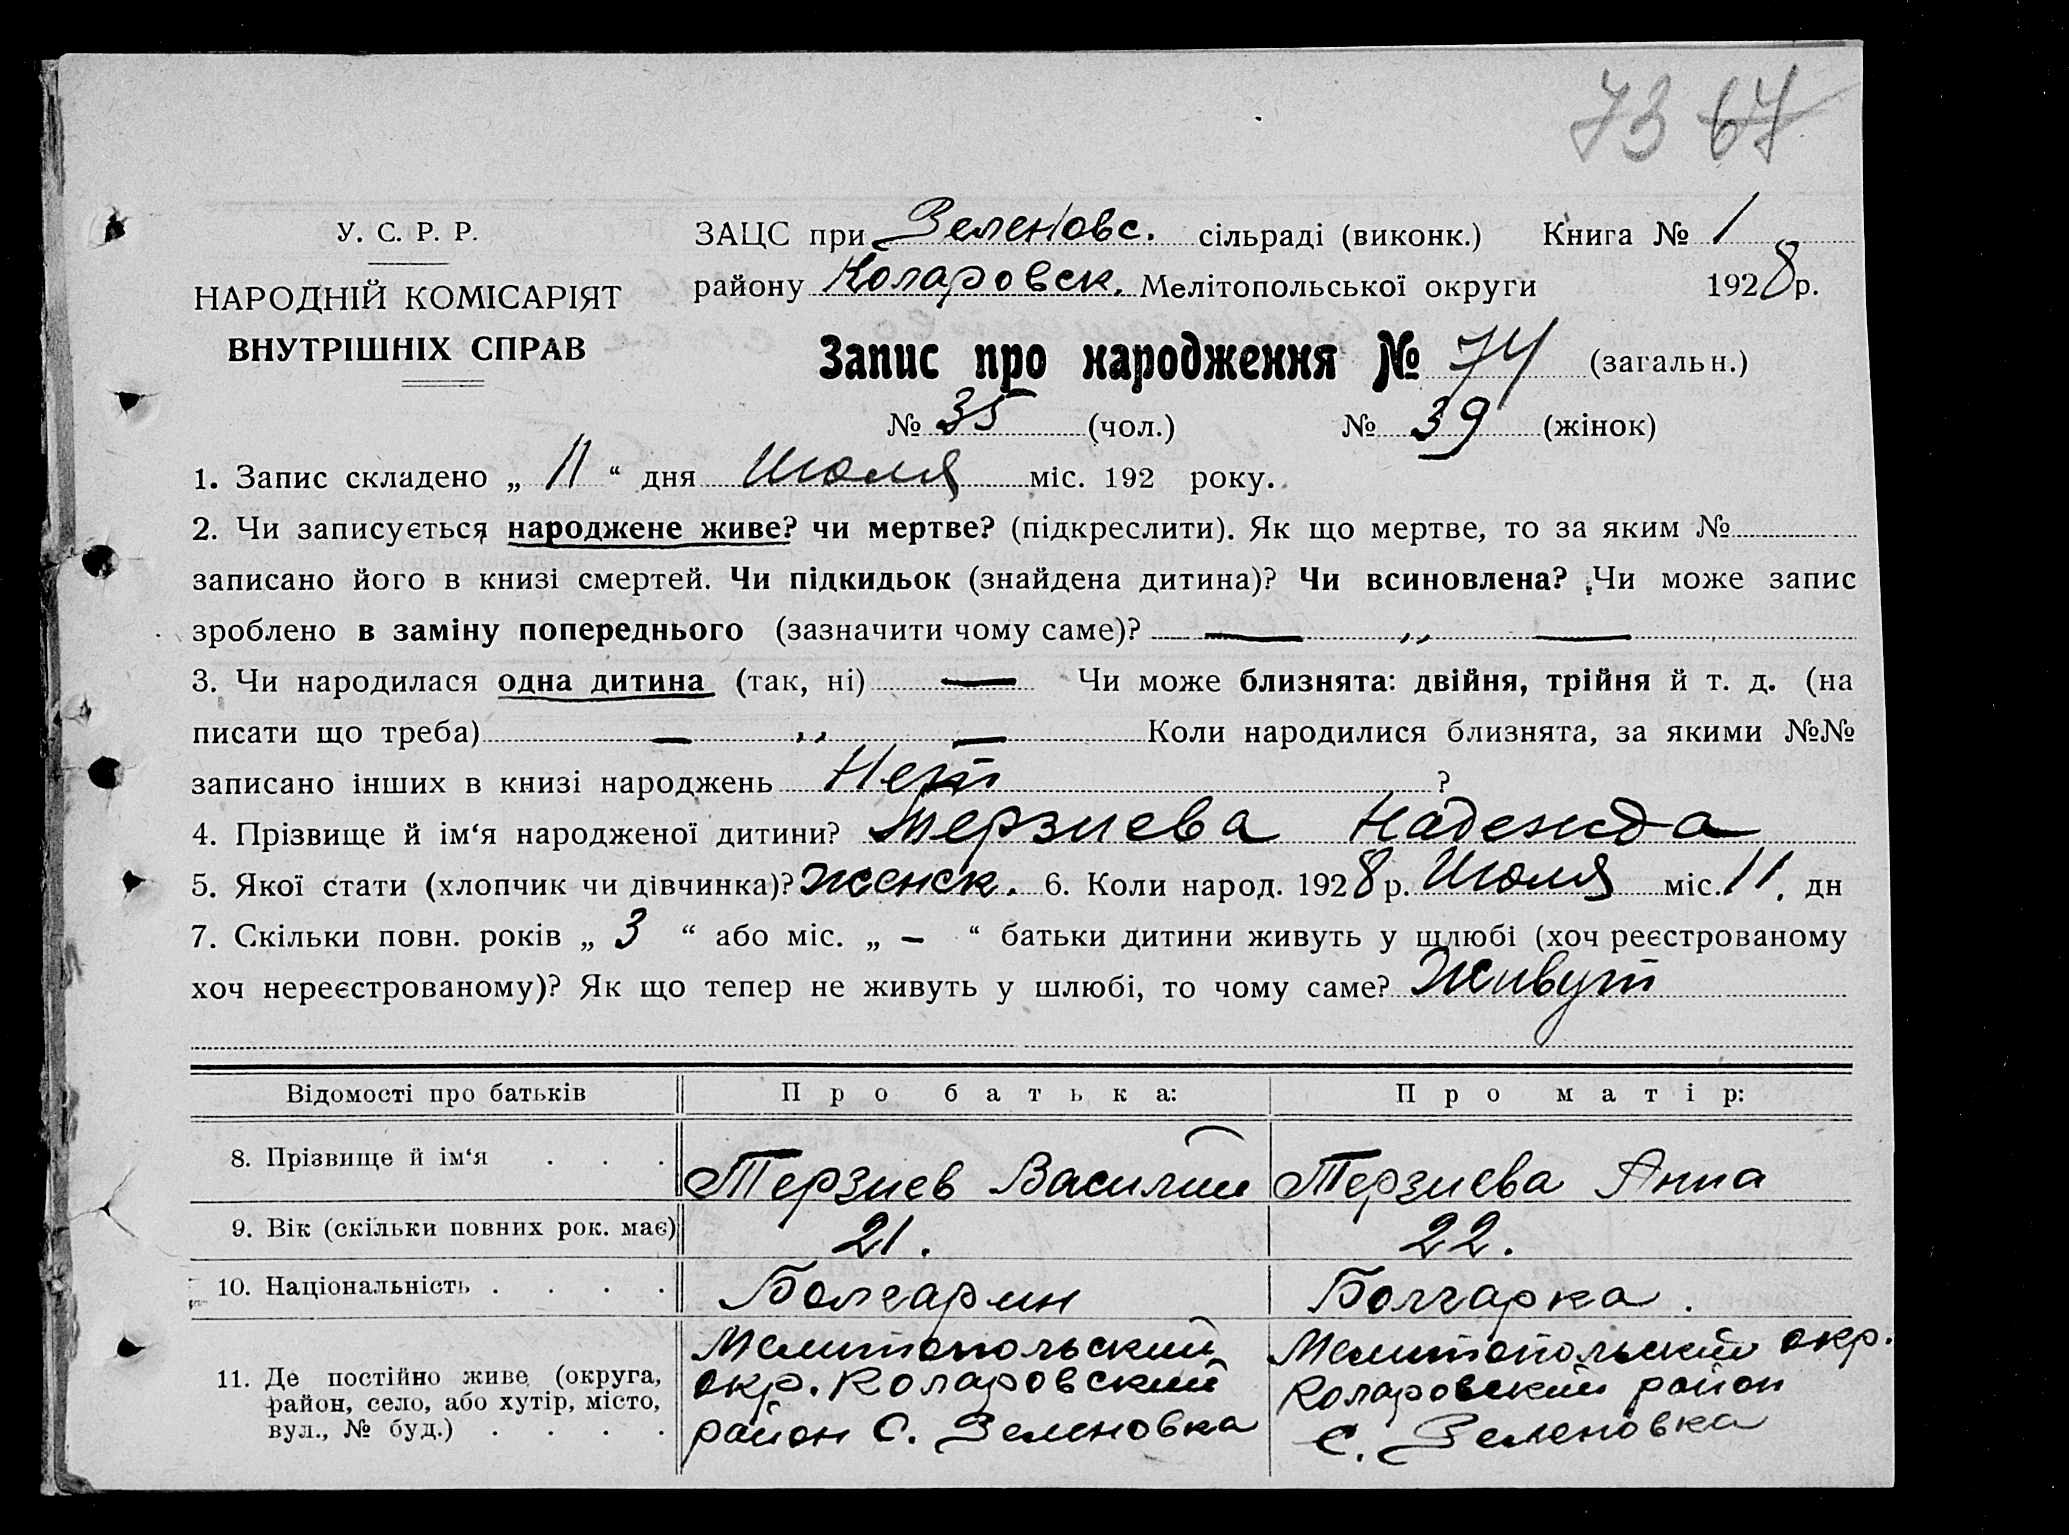 73 67
У. С. Р. Р.
НАРОДНІЙ КОМІСАРІЯТ
ВНУТРІШНІХ СПРАВ
ЗАЦС при Зеленовс. сільраді (виконк.) Книга № 1
району Коларовск. Мелітопольської округи 1928 р.
Запис про народження № 74 (загальн.)
№ 35 (чол.) № 39 (жінок)
1. Запис складено „ 11 “ дня Июля міс. 192 року.
2. Чи записується народжене живе? чи мертве? (підкреслити). Як що мертве, то за яким №
записано його в книзі смертей. Чи підкидьок (знайдена дитина)? Чи всиновлена? Чи може запис
зроблено в заміну попереднього (зазначити чому саме)? — „ —
3. Чи народилася одна дитина (так, ні) — Чи може близнята: двійня, трійня й т. д. (на
писати що треба) — „ — Коли народилися близнята, за якими №№
записано інших в книзі народжень Нет ?
4. Прізвище й ім‘я народженої дитини? Терзиева Надежда
5. Якої стати (хлопчик чи дівчинка)? женск. 6. Коли народ. 1928 р. Июля міс. 11. дн
7. Скільки повн. років „ 3 “ або міс. „ — “ батьки дитини живуть у шлюбі (хоч реєстрованому
хоч нереєстрованому)? Як що тепер не живуть у шлюбі, то чому саме? Живут
Відомості про батьків Про батька: Про матір:
8. Прізвище й ім‘я . . . Терзиев Василий Терзиева Анна
9. Вік (скільки повних рок. має) 21. 22.
10. Національність . . . . Болгарин Болгарка.
11. Де постійно живе (округа,
район, село, або хутір, місто,
вул., № буд.) . . . .
Мелитопольский
окр. Коларовский
район С. Зеленовка
Мелитопольский окр.
Коларовский район
с. Зеленовка